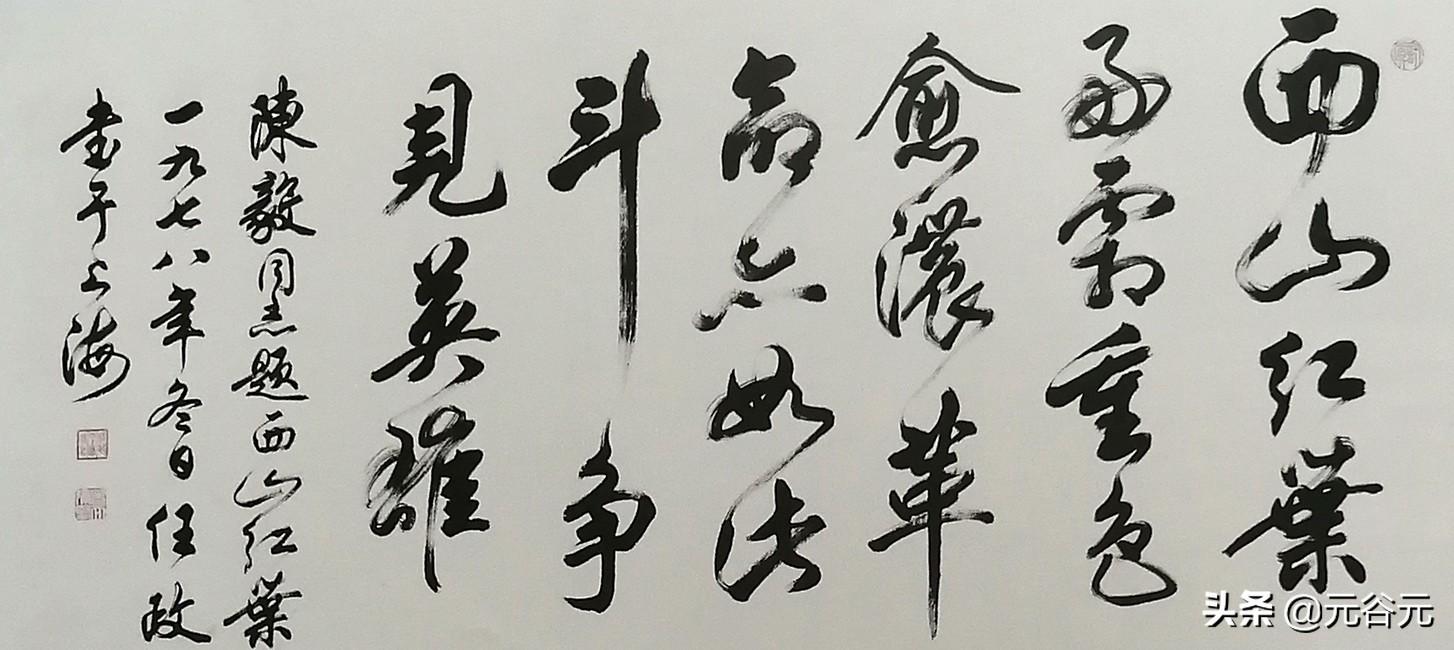 西山红葉
好霜重色
愈濃革
命亦如此
斗争
見英雄
陳毅同志题西山红葉
一九七八年冬日任政
書于上海
头条 @元谷元